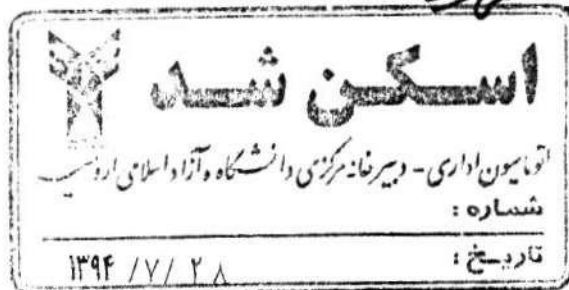 اسکن شد
اتوماسیون اداری - دبیرخانه مرکزی دانشگاه آزاد اسلامی
شماره :
تاریخ :
۱۳۹۴ /۷/ ۲۸